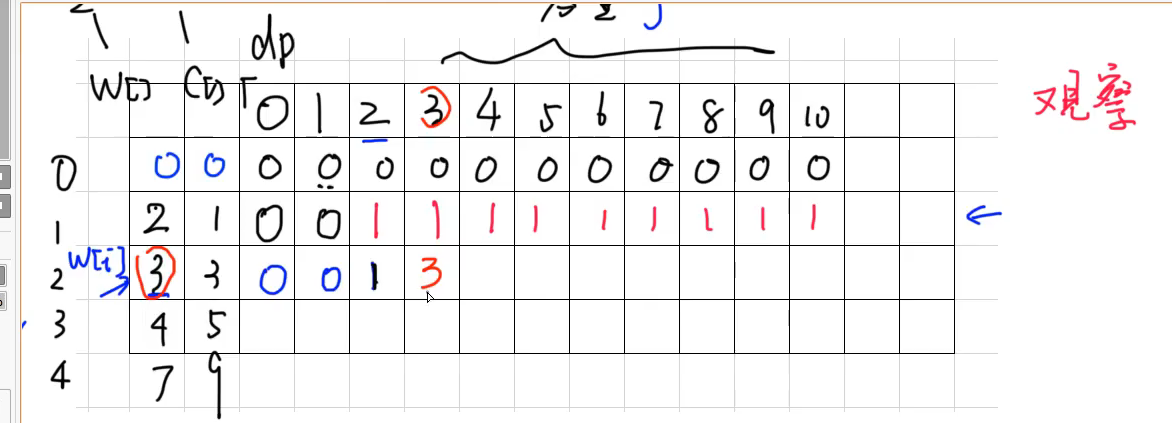 j
dp
W[] C[]
0 1 2 3 4 5 6 7 8 9 10
观察
0 0 0 0 0 0 0 0 0 0 0 0 0 0
1 2 1 0 0 1 1 1 1 1 1 1 1 1
W[i]
2 3 3 0 0 1 3
3 4 5
4 7 9